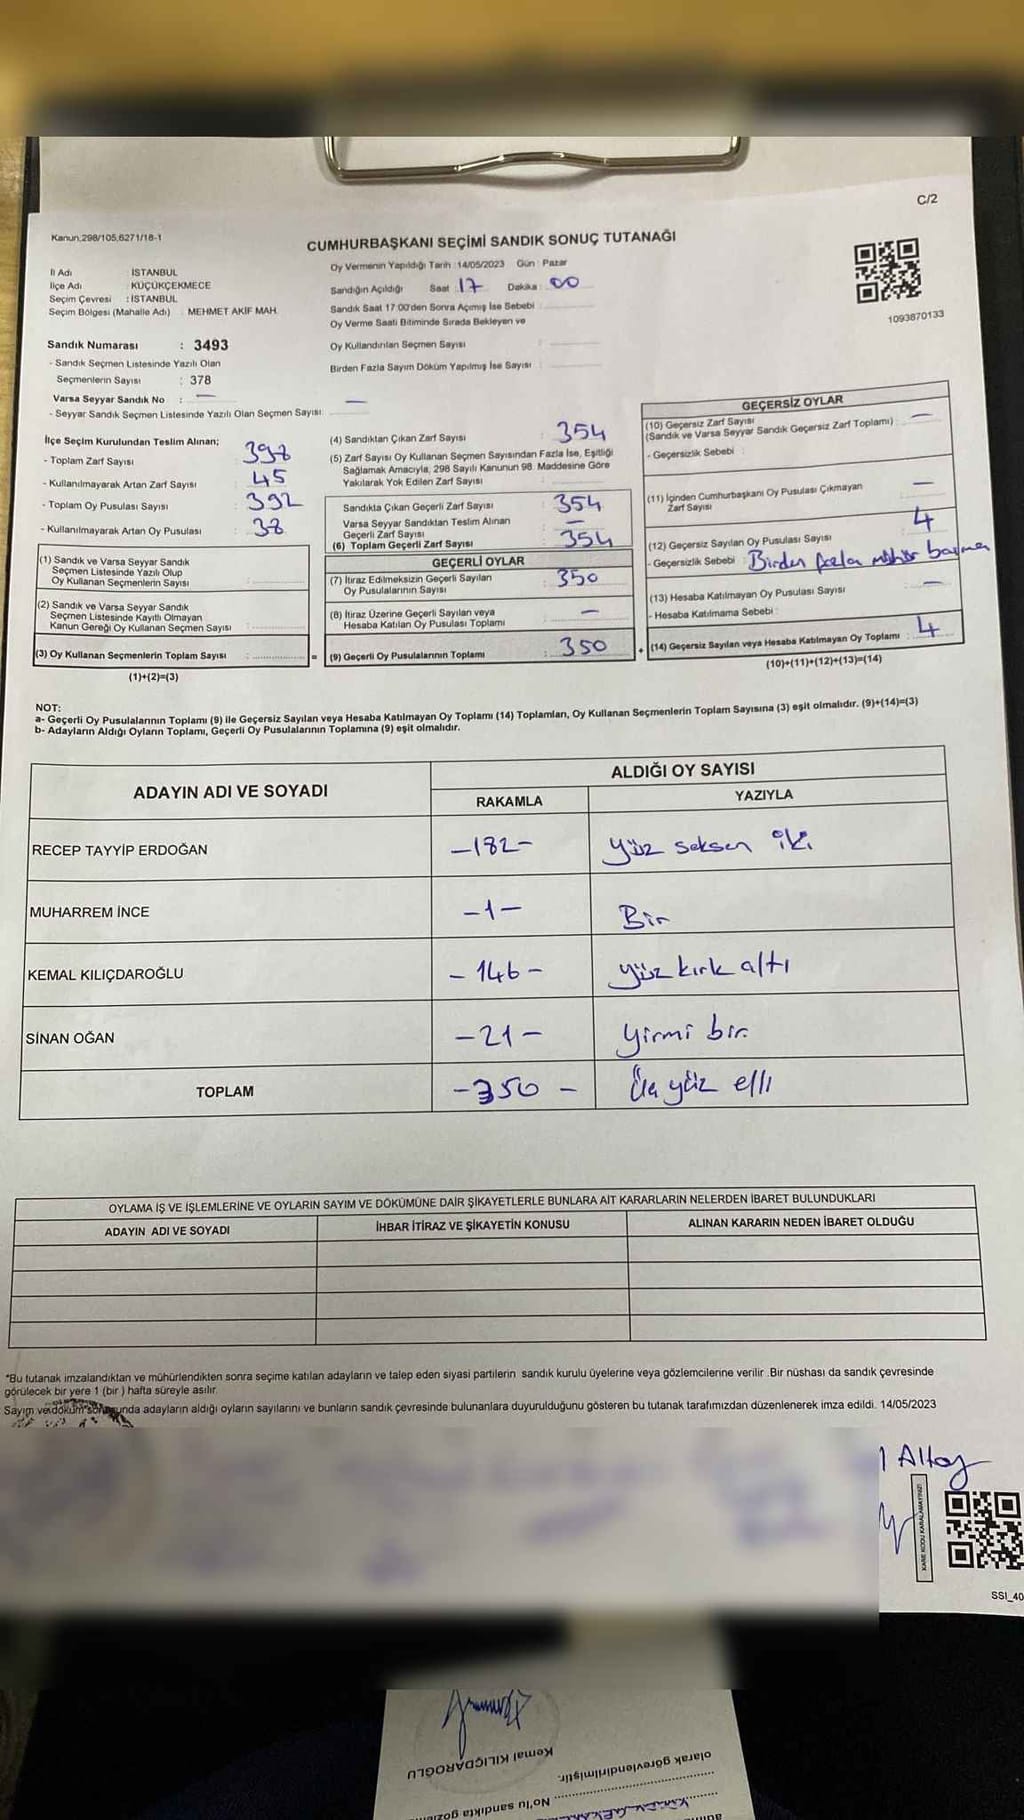 C/2
Kanun;298/105,6271/18-1
CUMHURBAŞKANI SEÇİMİ SANDIK SONUÇ TUTANAĞI
İl Adı İSTANBUL
İlçe Adı : KÜÇÜKÇEKMECE
Seçim Çevresi : İSTANBUL
Seçim Bölgesi (Mahalle Adı) : MEHMET AKİF MAH.
Oy Vermenin Yapıldığı Tarih :14/05/2023 Gün : Pazar
Sandığın Açıldığı Saat : 17 Dakika : 00
Sandık Saat 17:00'den Sonra Açımış İse Sebebi :
Oy Verme Saati Bitiminde Sırada Bekleyen ve
Oy Kullandırılan Seçmen Sayısı :
Birden Fazla Sayım Döküm Yapılmış İse Sayısı :
1093870133
Sandık Numarası : 3493
- Sandık Seçmen Listesinde Yazılı Olan
Seçmenlerin Sayısı : 378
Varsa Seyyar Sandık No : —
- Seyyar Sandık Seçmen Listesinde Yazılı Olan Seçmen Sayısı: —
İlçe Seçim Kurulundan Teslim Alınan;
- Toplam Zarf Sayısı
- Kullanılmayarak Artan Zarf Sayısı 45
- Toplam Oy Pusulası Sayısı 392
- Kullanılmayarak Artan Oy Pusulası 38
(1) Sandık ve Varsa Seyyar Sandık
Seçmen Listesinde Yazılı Olup
Oy Kullanan Seçmenlerin Sayısı :
(2) Sandık ve Varsa Seyyar Sandık
Seçmen Listesinde Kayıtlı Olmayan
Kanun Gereği Oy Kullanan Seçmen Sayısı :
(3) Oy Kullanan Seçmenlerin Toplam Sayısı : =
(1)+(2)=(3)
(4) Sandıktan Çıkan Zarf Sayısı : 354
(5) Zarf Sayısı Oy Kullanan Seçmen Sayısından Fazla İse, Eşitliği
Sağlamak Amacıyla, 298 Sayılı Kanunun 98. Maddesine Göre
Yakılarak Yok Edilen Zarf Sayısı :
Sandıkta Çıkan Geçerli Zarf Sayısı : 354
Varsa Seyyar Sandıktan Teslim Alınan
Geçerli Zarf Sayısı : —
(6) Toplam Geçerli Zarf Sayısı : 354
GEÇERLİ OYLAR
(7) İtiraz Edilmeksizin Geçerli Sayılan
Oy Pusulalarının Sayısı : 350
(8) İtiraz Üzerine Geçerli Sayılan veya
Hesaba Katılan Oy Pusulası Toplamı : —
(9) Geçerli Oy Pusulalarının Toplamı : 350 +
GEÇERSİZ OYLAR
(10) Geçersiz Zarf Sayısı
(Sandık ve Varsa Seyyar Sandık Geçersiz Zarf Toplamı) : —
- Geçersizlik Sebebi :
(11) İçinden Cumhurbaşkanı Oy Pusulası Çıkmayan
Zarf Sayısı : —
(12) Geçersiz Sayılan Oy Pusulası Sayısı : 4
- Geçersizlik Sebebi : Birden fazla mühür basma
(13) Hesaba Katılmayan Oy Pusulası Sayısı : —
- Hesaba Katılmama Sebebi :
(14) Geçersiz Sayılan veya Hesaba Katılmayan Oy Toplamı : 4
(10)+(11)+(12)+(13)=(14)
NOT:
a- Geçerli Oy Pusulalarının Toplamı (9) ile Geçersiz Sayılan veya Hesaba Katılmayan Oy Toplamı (14) Toplamları, Oy Kullanan Seçmenlerin Toplam Sayısına (3) eşit olmalıdır. (9)+(14)=(3)
b- Adayların Aldığı Oyların Toplamı, Geçerli Oy Pusulalarının Toplamına (9) eşit olmalıdır.
ADAYIN ADI VE SOYADI ALDIĞI OY SAYISI
RAKAMLA YAZIYLA
RECEP TAYYİP ERDOĞAN -182- yüz seksen iki
MUHARREM İNCE -1- Bir
KEMAL KILIÇDAROĞLU -146- yüz kırk altı
SİNAN OĞAN -21- yirmi bir
TOPLAM -350- Üç yüz elli
OYLAMA İŞ VE İŞLEMLERİNE VE OYLARIN SAYIM VE DÖKÜMÜNE DAİR ŞİKAYETLERLE BUNLARA AİT KARARLARIN NELERDEN İBARET BULUNDUKLARI
ADAYIN ADI VE SOYADI İHBAR İTİRAZ VE ŞİKAYETİN KONUSU ALINAN KARARIN NEDEN İBARET OLDUĞU
*Bu tutanak imzalandıktan ve mühürlendikten sonra seçime katılan adayların ve talep eden siyasi partilerin sandık kurulu üyelerine veya gözlemcilerine verilir .Bir nüshası da sandık çevresinde
görülecek bir yere 1 (bir ) hafta süreyle asılır.
Sayım ve döküm sonucunda adayların aldığı oyların sayılarını ve bunların sandık çevresinde bulunanlara duyurulduğunu gösteren bu tutanak tarafımızdan düzenlenerek imza edildi. 14/05/2023
Altay
KARE KODU KARALAMAYINIZ!
SSI_40
Kemal KILIÇDAROĞLU
olarak görevlendirilmiştir.
No'lu sandıkta